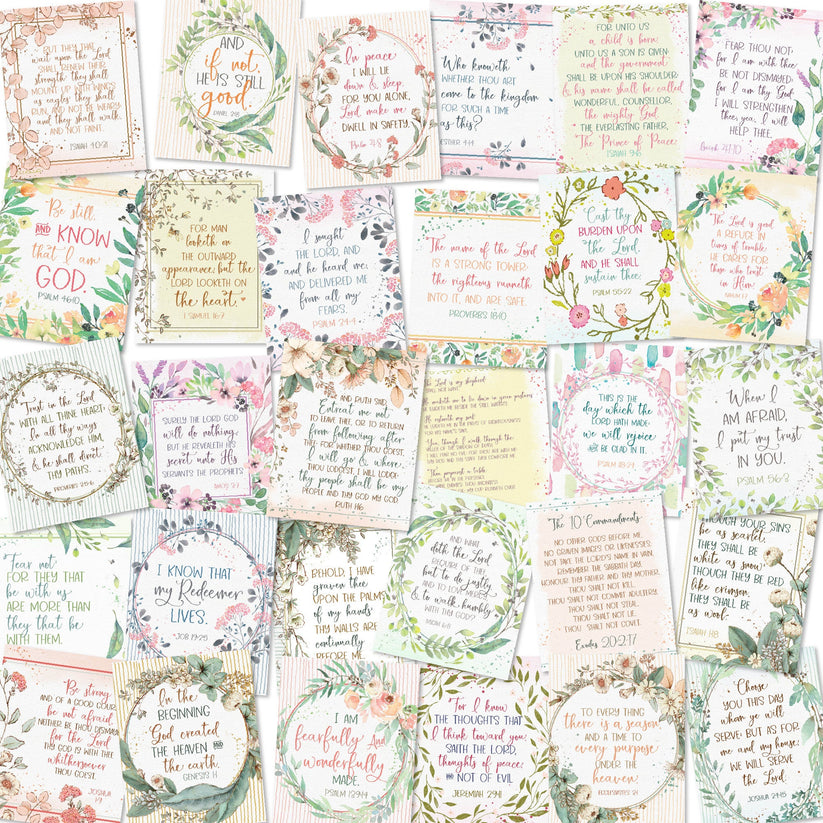 BUT THEY THAT
wait upon the Lord
SHALL RENEW THEIR
strength; they shall
MOUNT UP WITH WINGS
as eagles; they shall
RUN, AND NOT BE WEARY;
and they shall walk,
AND NOT FAINT.
ISAIAH 40:31
AND
if not,
HE IS STILL
good.
DANIEL 3:18
In peace
I WILL LIE
down & sleep,
FOR YOU ALONE,
Lord, make me
DWELL IN SAFETY.
Psalm 4:8
Who knoweth
WHETHER THOU ART
come to the kingdom
FOR SUCH A TIME
as this?
ESTHER 4:14
FOR UNTO US
a child is born,
UNTO US A SON IS GIVEN:
and the government
SHALL BE UPON HIS SHOULDER:
& his name shall be called
WONDERFUL, COUNSELLOR,
the mighty God,
THE EVERLASTING FATHER,
The Prince of Peace.
ISAIAH 9:6
FEAR THOU NOT;
for I am with thee:
BE NOT DISMAYED;
for I am thy God:
I WILL STRENGTHEN
thee; yea, I will
HELP THEE.
Isaiah 41:10
Be still,
AND KNOW
that I am
GOD.
PSALM 46:10
FOR MAN
looketh on
THE OUTWARD
appearance, but the
LORD LOOKETH ON
the heart.
1 SAMUEL 16:7
I sought
THE LORD, AND
and he heard me,
AND DELIVERED ME
from all my
FEARS.
PSALM 34:4
The name of the Lord
IS A STRONG TOWER:
the righteous runneth
INTO IT, AND ARE SAFE.
PROVERBS 18:10
Cast thy
BURDEN UPON
the Lord,
AND HE SHALL
sustain thee:
PSALM 55:22
The Lord is good,
A REFUGE IN
times of trouble.
HE CARES FOR
those who trust
in Him!
NAHUM 1:7
Trust in the Lord
WITH ALL THINE HEART;
In all thy ways
ACKNOWLEDGE HIM,
& he shall direct
THY PATHS.
PROVERBS 3:5-6
SURELY THE LORD GOD
will do nothing,
BUT HE REVEALETH HIS
secret unto His
SERVANTS THE PROPHETS
AMOS 3:7
AND RUTH SAID,
Entreat me not
TO LEAVE THEE, OR TO RETURN
from following after
THEE: FOR WHITHER THOU GOEST,
I will go & where
THOU LODGEST, I WILL LODGE:
thy people shall be my
PEOPLE AND THY GOD MY GOD.
RUTH 1:16
The Lord is my shepherd;
THIS IS THE
day which the
LORD HATH MADE;
we will rejoice
AND BE GLAD IN IT.
PSALM 118:24
When I
AM AFRAID,
I put my trust
IN YOU.
PSALM 56:3
Fear not:
FOR THEY THAT
be with us
ARE MORE THAN
they that be
WITH THEM.
I KNOW THAT
my Redeemer
LIVES.
JOB 19:25
BEHOLD, I HAVE
graven thee
UPON THE PALMS
of my hands;
THY WALLS ARE
continually
BEFORE ME.
AND WHAT
doth the Lord
REQUIRE OF THEE
but to do justly,
AND TO LOVE MERCY,
& to walk humbly
WITH THY GOD?
MICAH 6:8
The 10 Commandments
NO OTHER GODS BEFORE ME.
NO GRAVEN IMAGES OR LIKENESSES.
NOT TAKE THE LORD'S NAME IN VAIN.
REMEMBER THE SABBATH DAY.
HONOUR THY FATHER AND THY MOTHER.
THOU SHALT NOT KILL.
THOU SHALT NOT COMMIT ADULTERY.
THOU SHALT NOT STEAL.
THOU SHALT NOT LIE.
THOU SHALT NOT COVET.
Exodus 20:2-17
THOUGH YOUR SINS
be as scarlet,
THEY SHALL BE
white as snow;
THOUGH THEY BE RED
like crimson,
THEY SHALL BE
as wool.
ISAIAH 1:18
Be strong
AND OF A GOOD COURAGE;
be not afraid,
NEITHER BE THOU DISMAYED:
for the Lord
THY GOD IS WITH THEE
whithersoever
THOU GOEST.
JOSHUA 1:9
In the
BEGINNING
God created
THE HEAVEN AND
the earth.
GENESIS 1:1
I AM
fearfully And
wonderfully
MADE.
PSALM 139:14
For I know
THE THOUGHTS THAT
I think toward you,
SAITH THE LORD,
thoughts of peace,
AND NOT OF EVIL
JEREMIAH 29:11
TO EVERY THING
there is a season,
AND A TIME TO
every purpose
UNDER THE
heaven:
ECCLESIASTES 3:1
Choose
YOU THIS DAY
whom ye will
SERVE; BUT AS FOR
me and my house,
WE WILL SERVE
the Lord.
JOSHUA 24:15